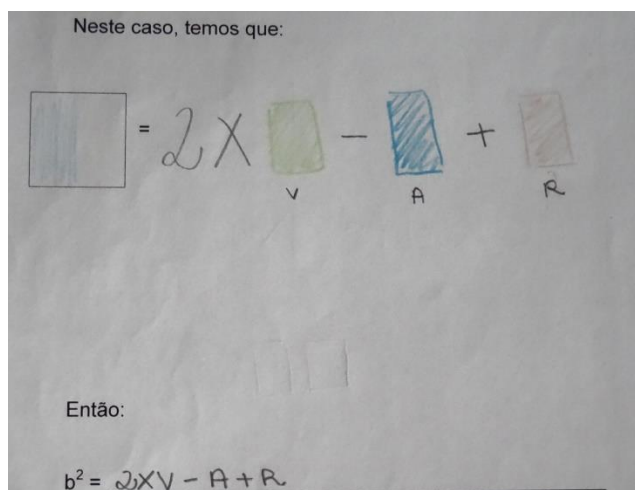 Neste caso, temos que:
= 2X - +
V A R
Então:
b² = 2XV - A + R